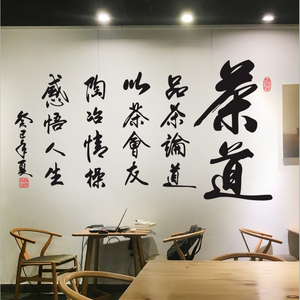 茶道
品茶論道
以茶會友
陶冶情操
感悟人生
癸巳年夏